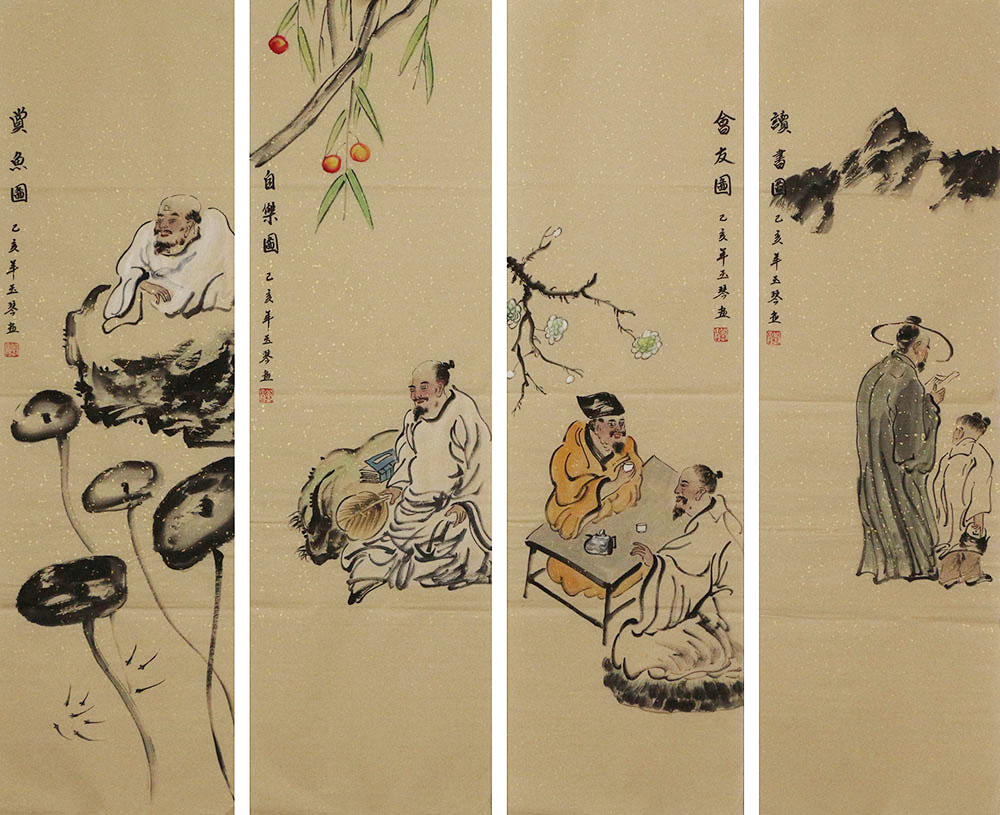 賞魚圖
乙亥年玉琴畫
自樂圖
乙亥年玉琴畫
會友圖
乙亥年玉琴畫
讀書圖
乙亥年玉琴畫